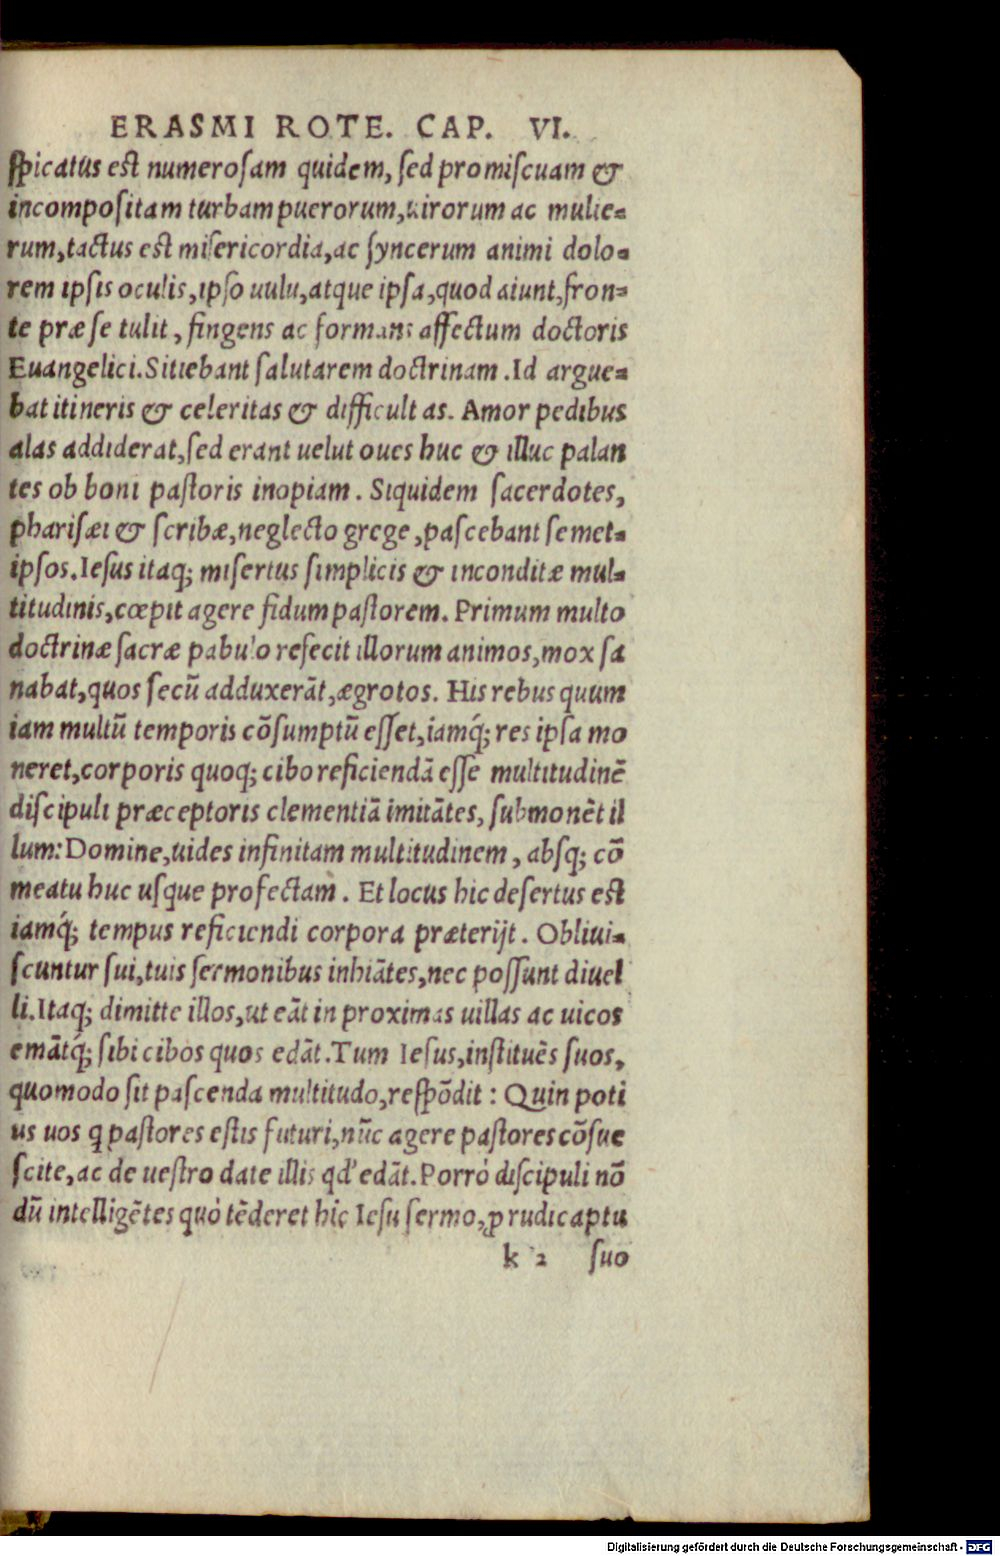 ERASMI ROTE. CAP. VI.
ſpicatus est numeroſam quidem, ſed promiſcuam &
incompoſitam turbam puerorum, uirorum ac mulie-
rum, tactus est miſericordia, ac ſyncerum animi dolo-
rem ipſis oculis, ipſo uulu, atque ipſa, quod aiunt, fron-
te præ ſe tulit, fingens ac formans affectum doctoris
Euangelici. Sitiebant ſalutarem doctrinam. Id argue-
bat itineris & celeritas & difficultas. Amor pedibus
alas addiderat, ſed erant uelut oues huc & illuc palan
tes ob boni paſtoris inopiam. Siquidem ſacerdotes,
phariſæi & ſcribæ, neglecto grege, paſcebant ſemet-
ipſos. Ieſus itaq; miſertus ſimplicis & inconditæ mul-
titudinis, cœpit agere fidum paſtorem. Primum multo
doctrinæ ſacræ pabulo refecit illorum animos, mox ſa
nabat, quos ſecū adduxerāt, ægrotos. His rebus quum
iam multū temporis cōſumptū eſſet, iamq́; res ipſa mo
neret, corporis quoq; cibo reficiendā eſſe multitudinē
diſcipuli præceptoris clementiā imitātes, ſubmonēt il
lum: Domine, uides infinitam multitudinem, abſq; cō
meatu huc uſque profectam. Et locus hic deſertus est
iamq́; tempus reficiendi corpora præterijt. Obliui-
ſcuntur ſui, tuis ſermonibus inhiātes, nec poſſunt diuel
li. Itaq; dimitte illos, ut eāt in proximas uillas ac uicos
emātq́; ſibi cibos quos edāt. Tum Ieſus, inſtituēs ſuos,
quomodo ſit paſcenda multitudo, reſpōdit: Quin poti
us uos q paſtores eſtis futuri, nūc agere paſtores cōſue
ſcite, ac de ueſtro date illis qd' edāt. Porrò diſcipuli nō
dū intelligētes quò tēderet hic Ieſu ſermo, ꝓ rudi captu
k 2 ſuo
Digitalisierung gefördert durch die Deutsche Forschungsgemeinschaft - DFG